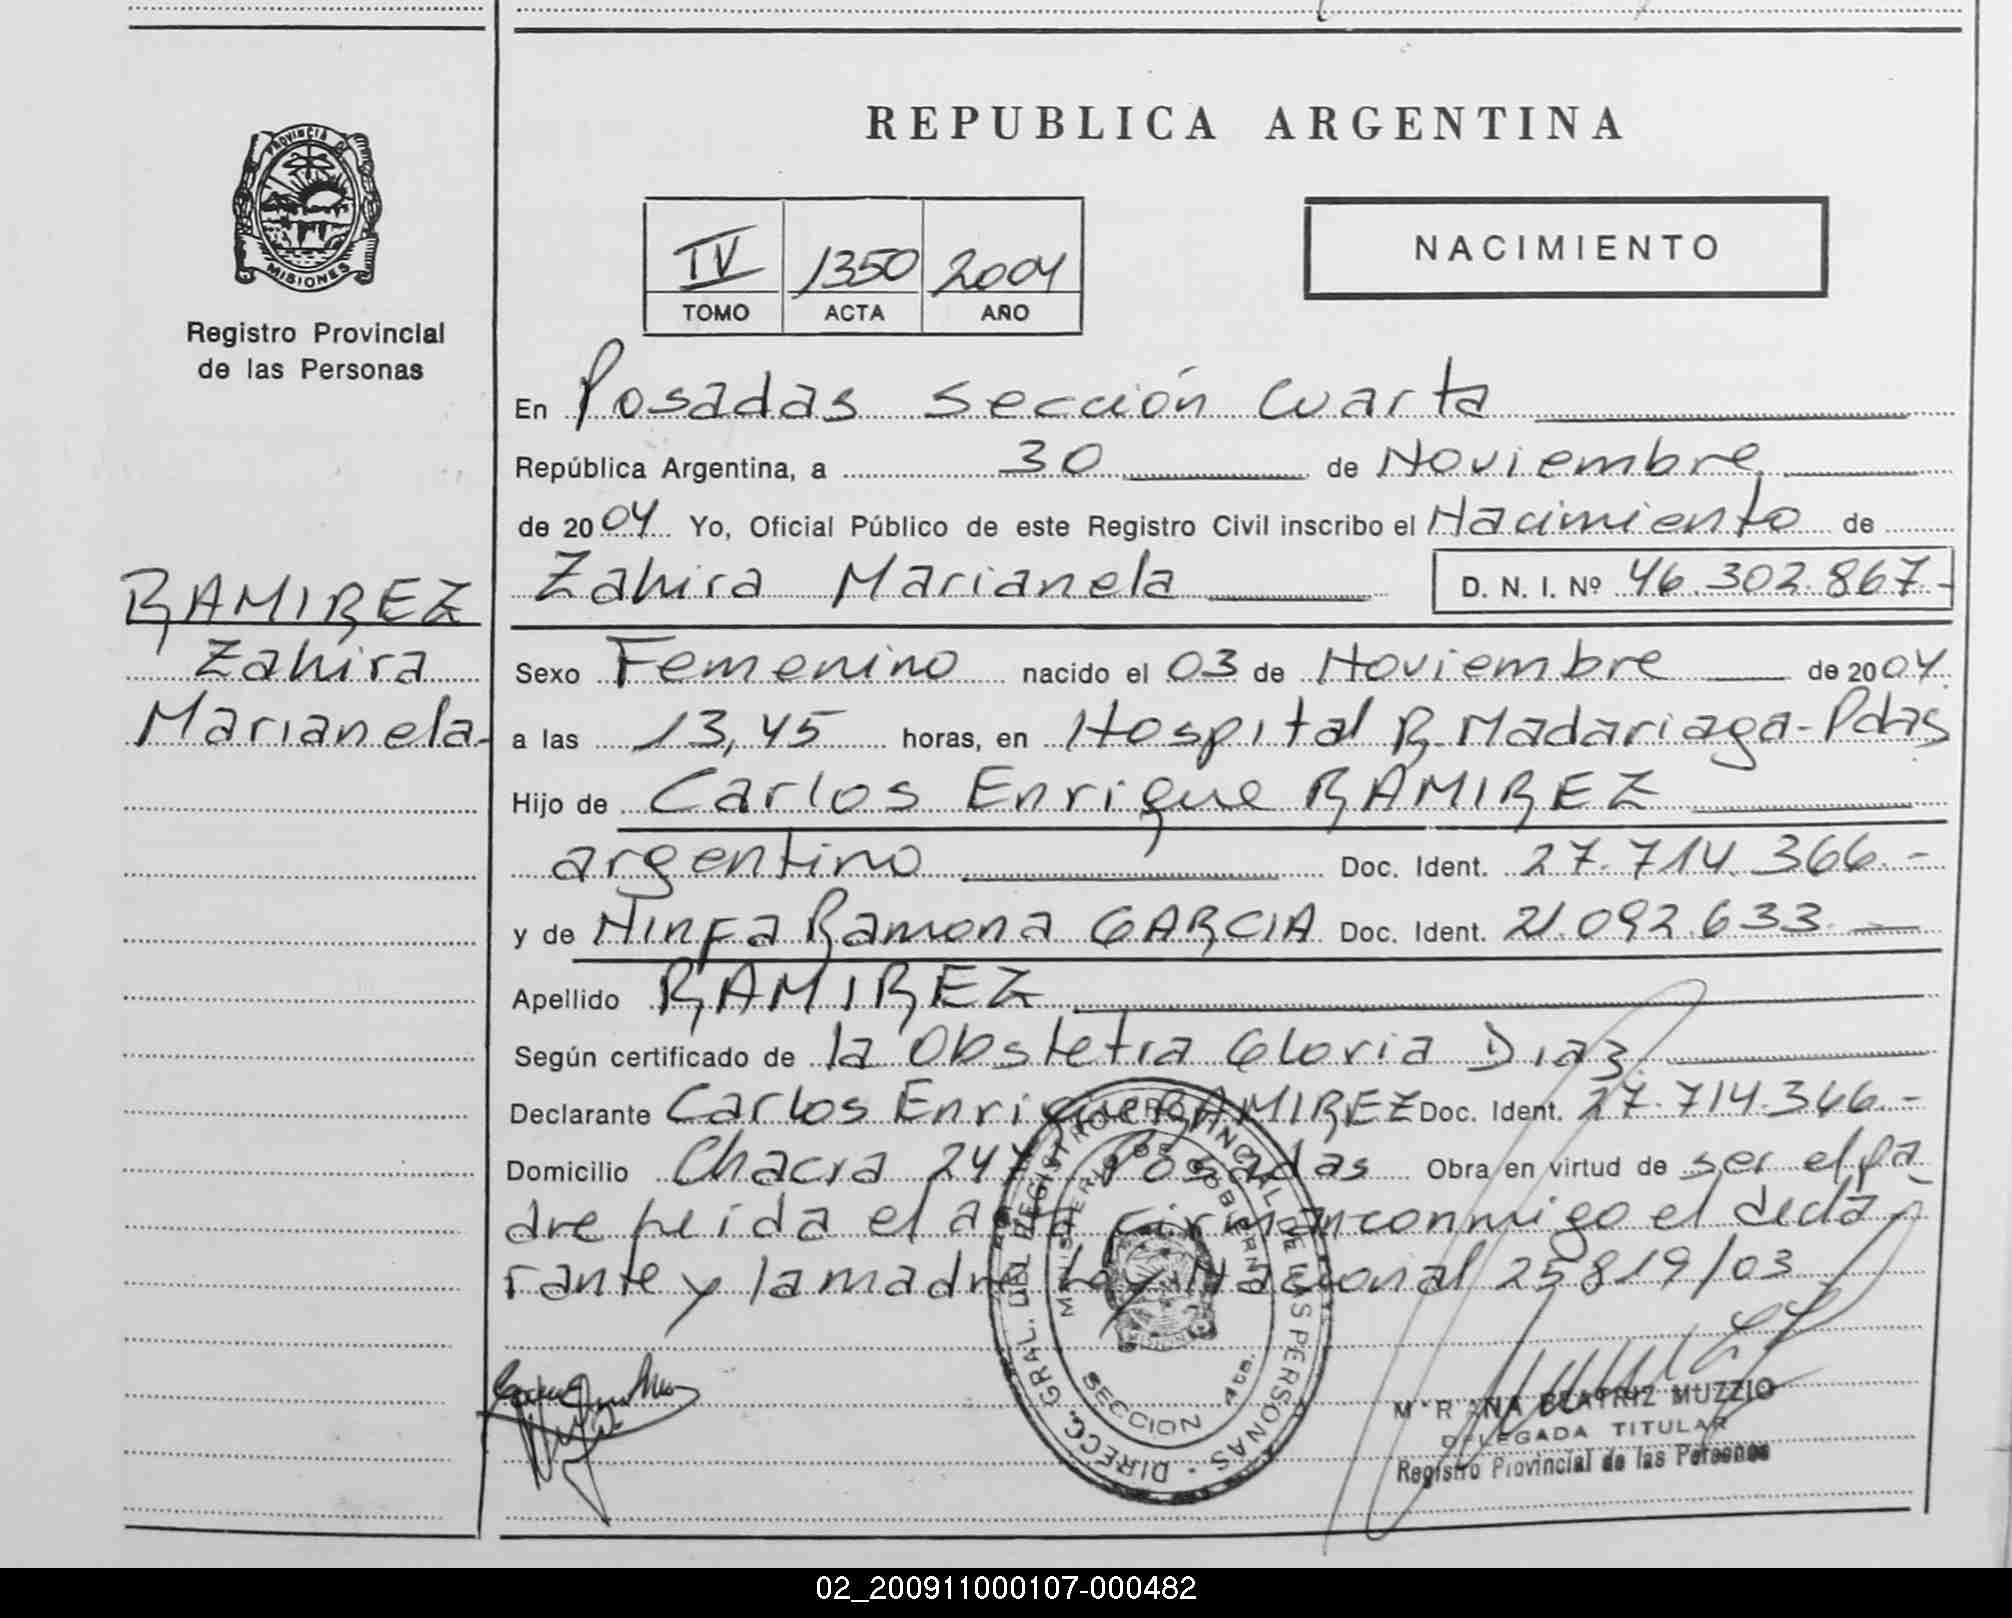 REPUBLICA ARGENTINA
PROVINCIA DE
MISIONES
Registro Provincial
de las Personas
IV 1350 2004
TOMO ACTA AÑO
NACIMIENTO
RAMIREZ
Zahira
Marianela-
En Posadas sección cuarta
República Argentina, a 30 de Noviembre
de 2004 Yo, Oficial Público de este Registro Civil inscribo el Nacimiento de
Zahira Marianela D. N. I. Nº 46.302.867-
Sexo Femenino nacido el 03 de Noviembre de 2004.
a las 13,45 horas, en Hospital R. Madariaga-Pdas
Hijo de Carlos Enrique RAMIREZ
argentino Doc. Ident. 27.714.366.-
y de Ninfa Ramona GARCIA Doc. Ident. 21.092.633.
Apellido RAMIREZ
Según certificado de la Obstetra Gloria Diaz
Declarante Carlos Enrique RAMIREZ Doc. Ident. 27.714.366.-
Domicilio Chacra 247 Posadas Obra en virtud de ser el pa
dre Leida el acta firman conmigo el decla
rante y la madre Ley Nacional 25819/03
DIRECC. GRAL. DEL REGISTRO PROVINCIAL DE LAS PERSONAS
MINISTERIO DE GOBIERNO
SECCION 4ta.
BEATRIZ MUZZIO
DELEGADA TITULAR
Registro Provincial de las Personas
02_200911000107-000482